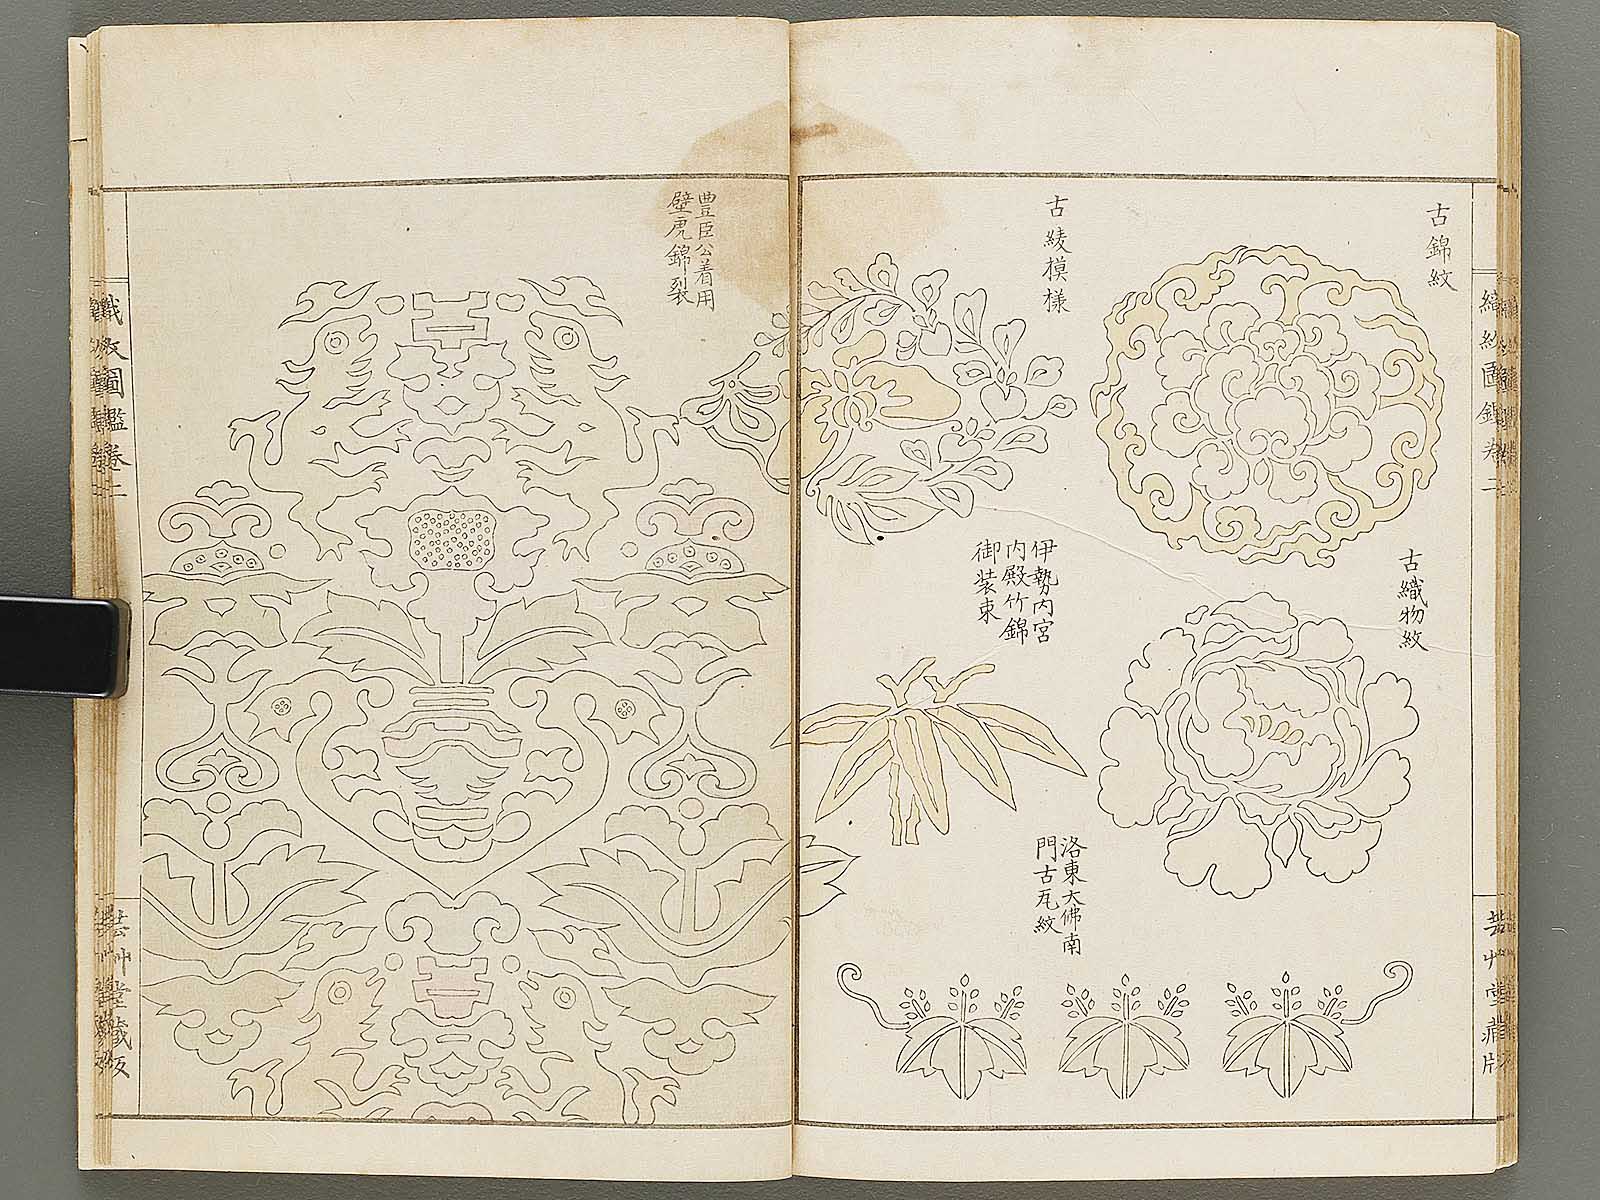 古錦紋
古織物紋
古綾模様
伊勢内宮
内殿竹錦
御装束
洛東大佛南
門古瓦紋
豊臣公着用
壁虎錦裂
織文圖鑑巻二
芸艸堂蔵版